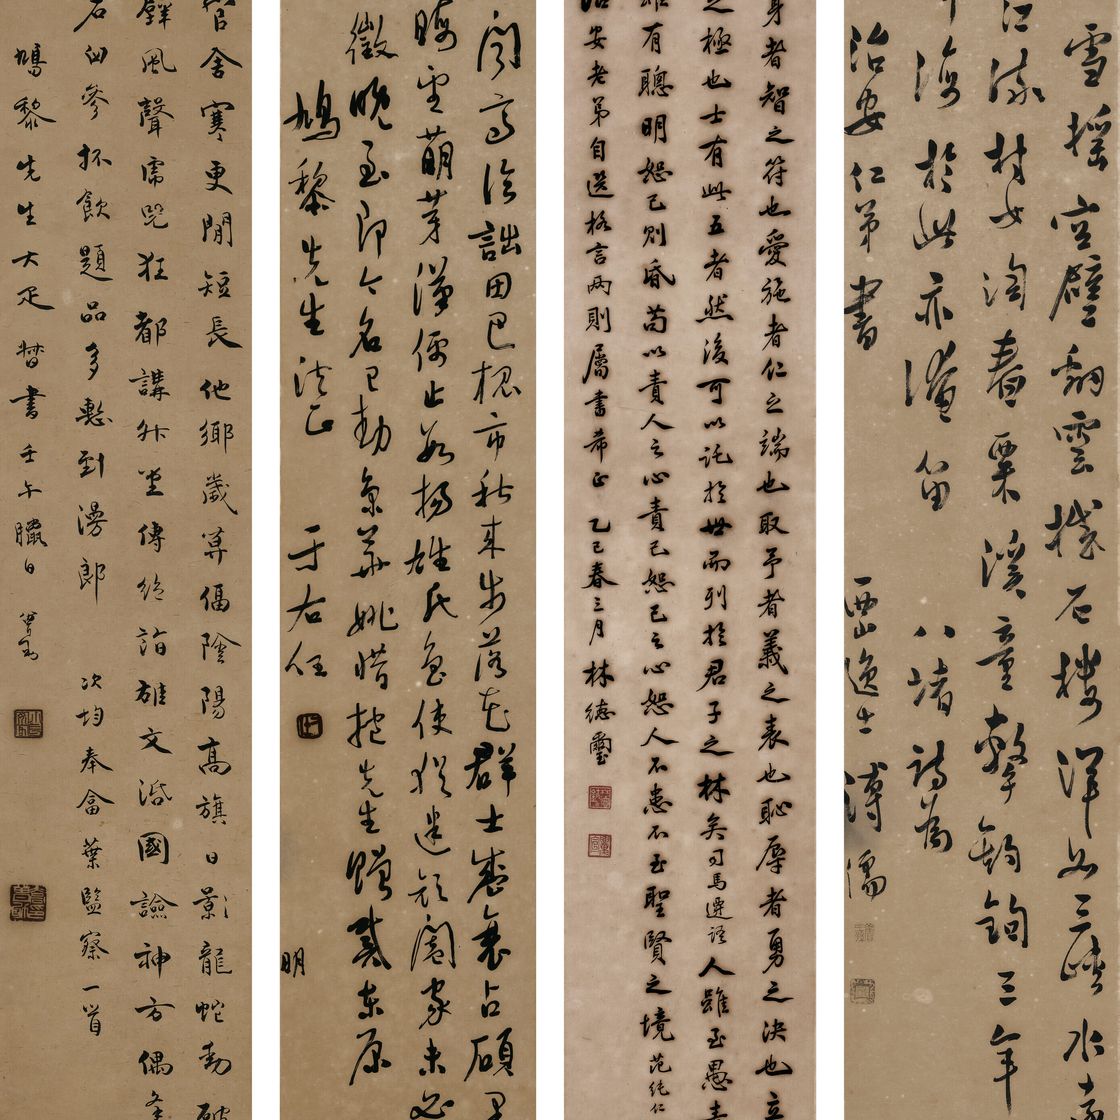 雪搖空壁翻雲棧石樓渾如三峽水
江流村女淘春粟溪童擊釣鉤三年
於此亦
治安仁弟書 西山逸士溥儒
身者智之符也愛施者仁之端也取予者義之表也恥辱者勇之決也立
之極也士有此五者然後可以託於世而列於君子之林矣司馬遷語人雖至愚責
雖有聰明恕己則昏苟以責人之心責己恕己之心恕人不患不至聖賢之境范純仁
治安老弟自選格言兩則屬書希正 乙巳春三月 林德璽
聞高論詘田巴槐市秋來步落花群士盛衰占碩果
明
晦望萌芽漢儒止數揚雄氏魯使猶迷顏闔家未必
徵晚至即今名已動京華姚惜抱先生贈戴東原
鳩黎先生法正 于右任
官舍寒更閒短長他鄉歲算偪陰陽高旗日影龍蛇動破
鐸風聲虎兕狂都講升堂傳絕詣雄文活國諗神方偶
參杯飲題品多慙到漫郎 次均奉龠葉監察一首
鳩黎先生大疋 督書 壬午臘日